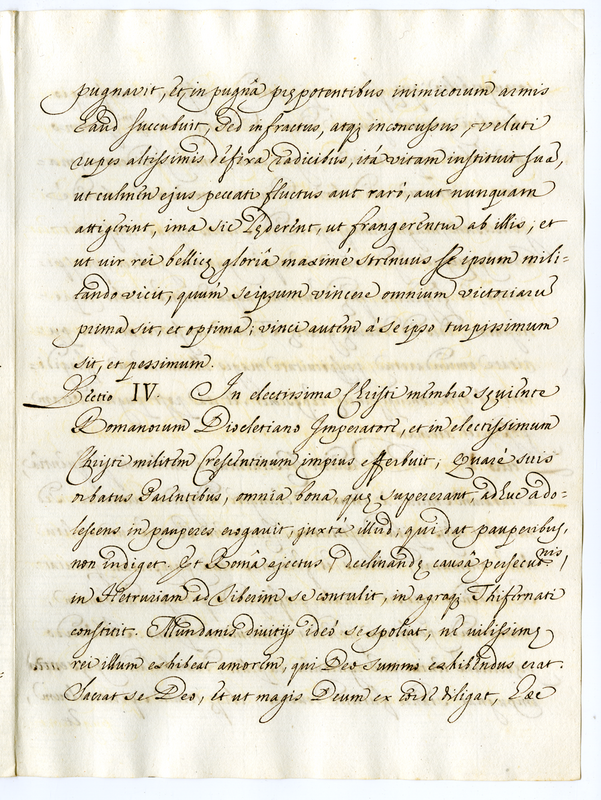 pugnavit, et in pugnâ prępotentibus inimicorum armis
haud succubuit, sed infractus, atq; inconcussus, veluti
rupes altissimis défixa radicibus, itá vitam instituit suã,
ut culmen ejus peccati fluctus aut raró, aut nunquam
attigerint, ima sic lęderent, ut frangerentur ab illis; et
ut vir rei bellicę gloriâ maximé strenuus se ipsum mili=
tando vicit; quùm seipsum vincere omnium victoriarũ
prima sit, et optima; vinci autem à se ipso turpissimum
sit, et pessimum.
Lectio IV. In electissima Christi membra sęviente
Romanorum Diocletiano Imperatore, et in electissimum
Christi militem Crescentinum impius efferbuit; Quaré suis
orbatus Parentibus, omnia bona, quę supererant, adhuc ado=
lescens in pauperes erogavit, juxtá illud, qui dat pauperibus,
non indiget. Et Româ ejectus, declinandę causâ persecutionis,
in Hetruriam ad Tiberim se contulit, in agroq; Thifernati
constitit. Mundanis divitijs ideó se spoliat, ne vilissimę
rei illum exhibeat amorem, qui Deo summo exhibendus erat.
Sacrat se Deo, et ut magis Deum ex corde diligat, hæc